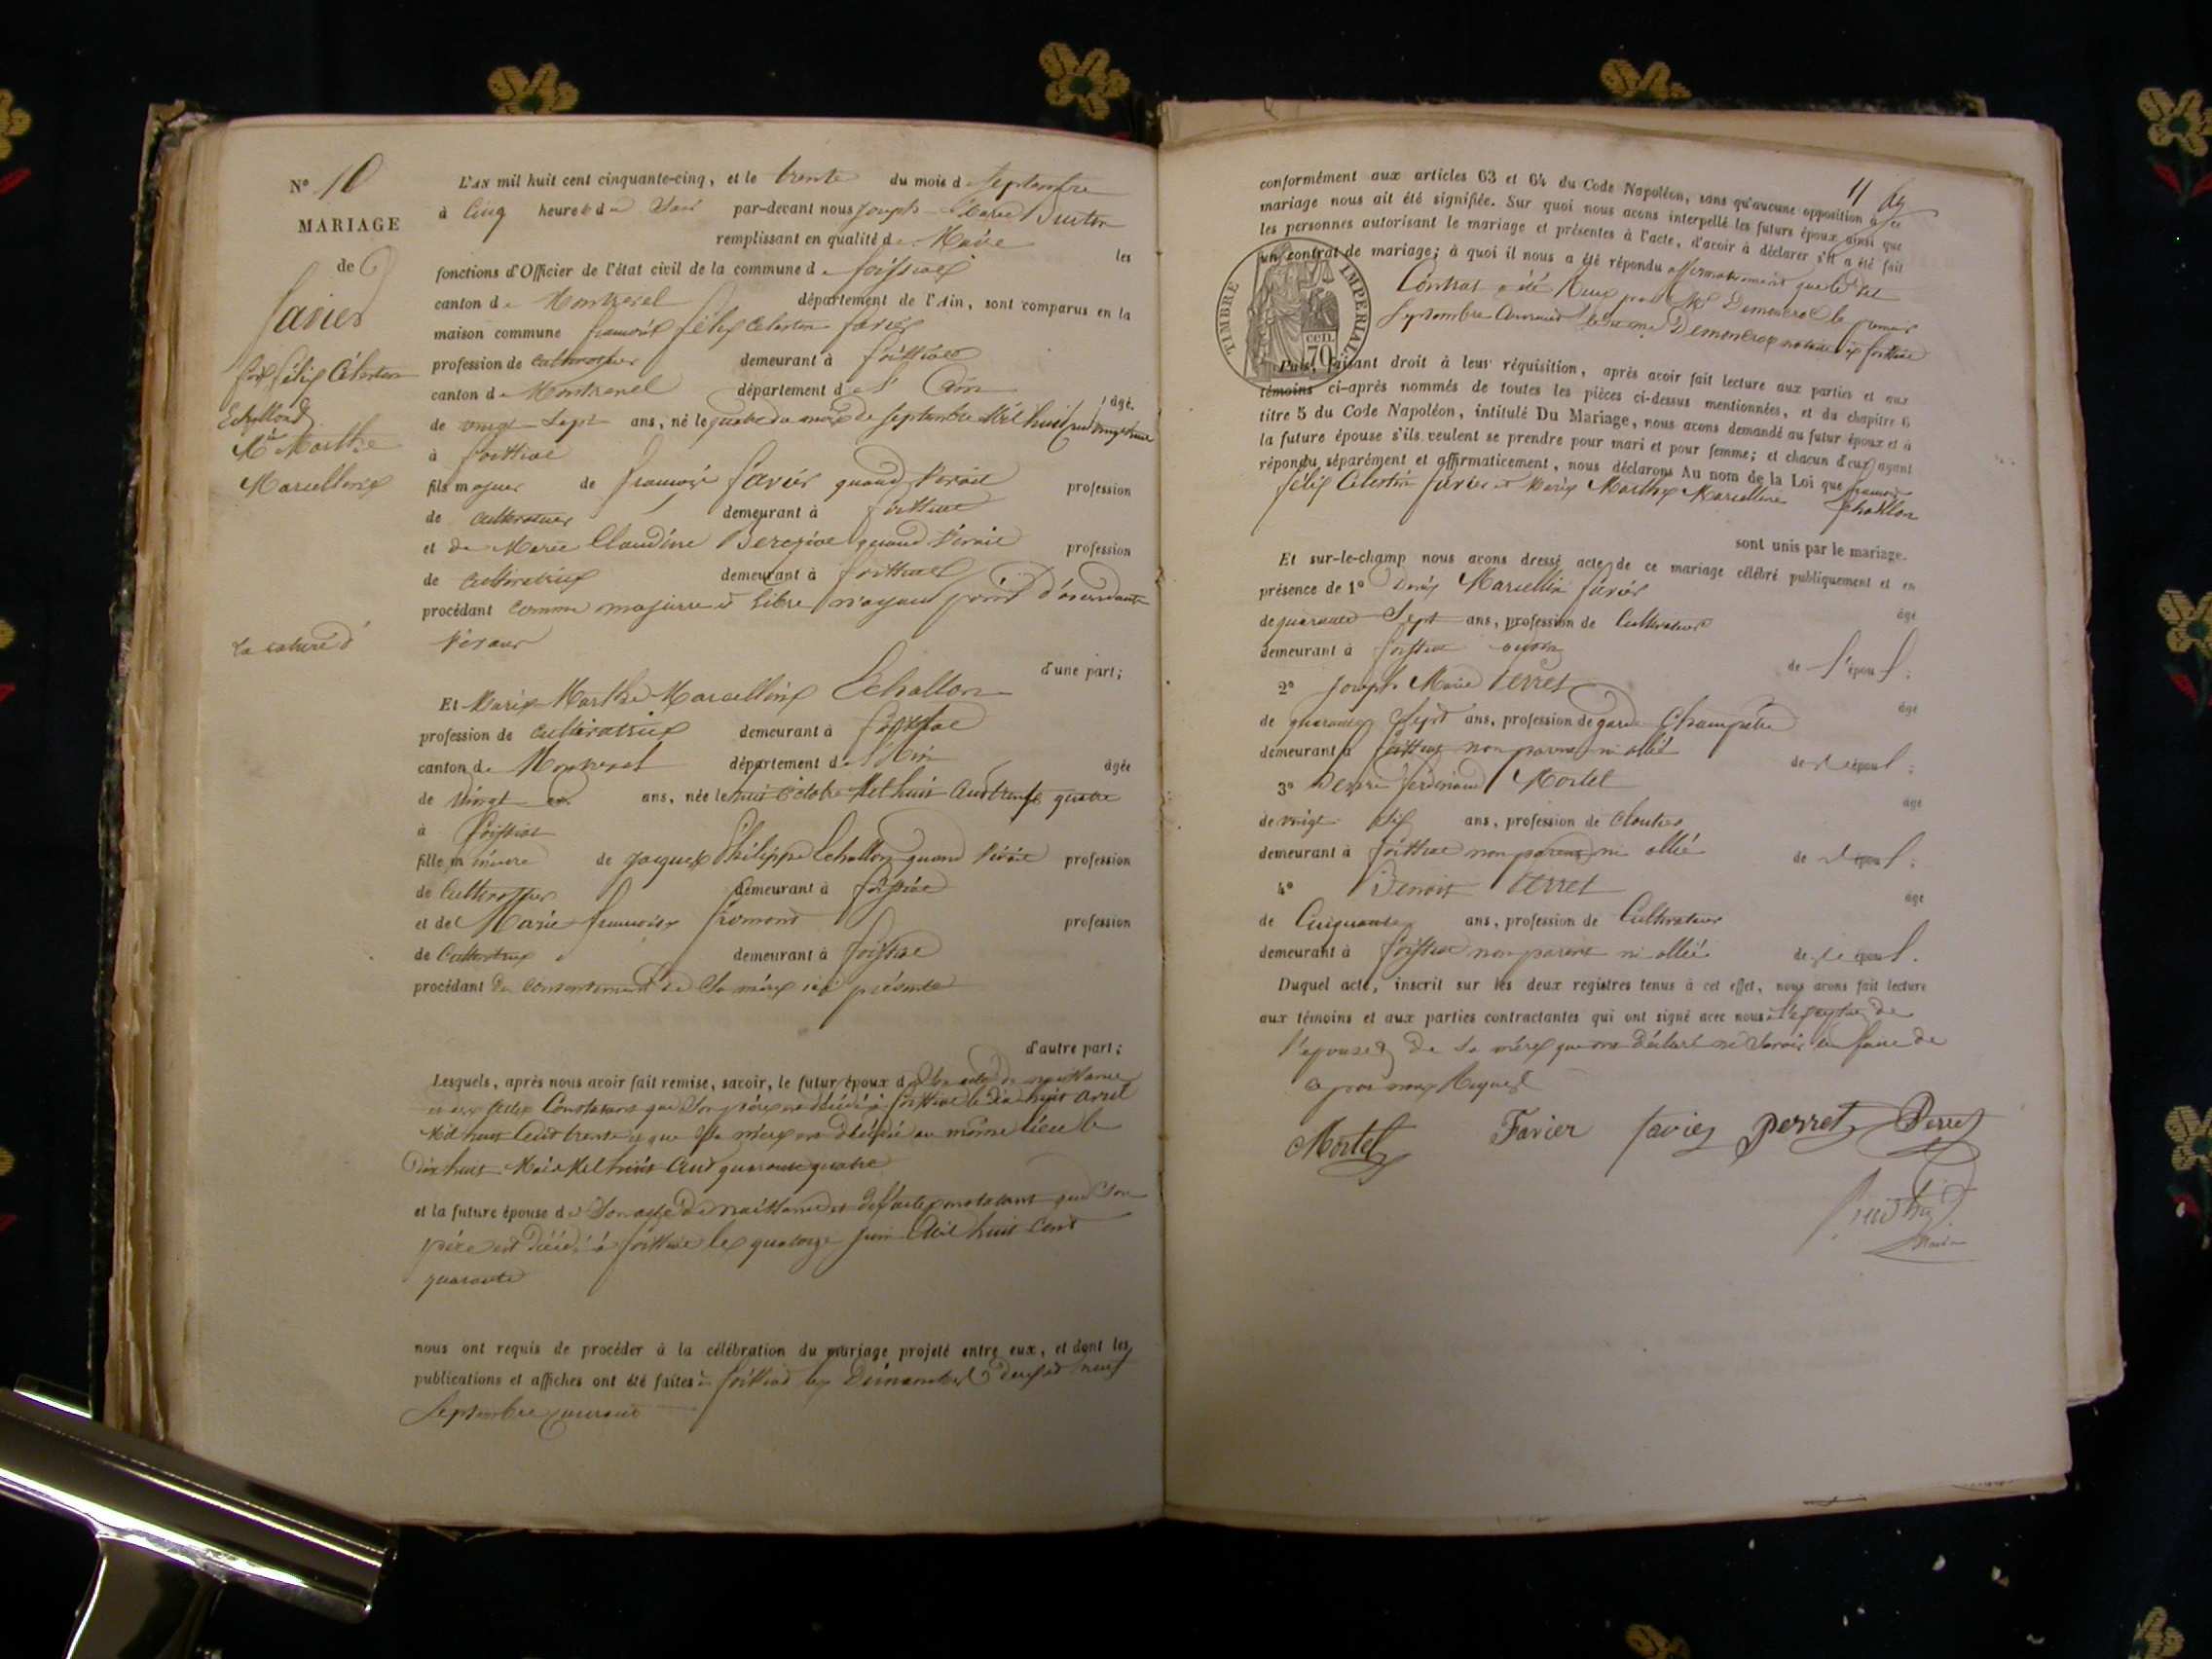 N° 10
MARIAGE
de
Favier
fois félix Célestin
Echallond
Mie Marthe
Marcelline
L'AN mil huit cent cinquante-cinq, et le trente du mois de Septembre
à Cinq heures du Soir par-devant nous Joseph
remplissant en qualité de Maire les
fonctions d'Officier de l'état civil de la commune de foissiat
canton de Montrevel département de l'Ain, sont comparus en la
maison commune françois félix Célestin favier
profession de cultivateur demeurant à foissiat
canton de Montrevel département de l'Ain âgé
de vingt Sept ans, né le quatre du mois de Septembre Mil huit cent vingt huit
à foissiat
fils majeur de françois favier quand vivait profession
de cultivateur demeurant à foissiat
et de Marie Claudine quand vivait profession
de cultivatrice demeurant à foissiat
procédant comme majeure et libre n'ayant point d'ascendants
vivans
d'une part;
Et Marie Marthe Marcelline Echallon
profession de cultivatrice demeurant à foissiat
canton de Montrevel département de l'Ain âgée
de vingt ans, née le huit octobre Mil huit Cent trente quatre
à foissiat
fille mineure de Jacques Philippe Echallon quand vivait profession
de Cultivateur demeurant à foissiat
et de Marie françoise fromont profession
de Cultivatrice demeurant à foissiat
procédant du consentement de Sa mère ici présente
d'autre part;
Lesquels, après nous avoir fait remise, savoir, le futur époux de Son acte de naissance
et des actes Constatant que Son père est décédé à foissiat le dix huit avril
Mil huit Cent trente et que Sa mère est décédée au même lieu le
Dix huit Mai Mil huit Cent quarante quatre
et la future épouse de Son acte de naissance et de l'acte constatant que Son
père est décédé à foissiat le quatorze juin Mil huit Cent
quarante
nous ont requis de procéder à la célébration du mariage projeté entre eux, et dont les
publications et affiches ont été faites à foissiat les Dimanches deux et neuf
Septembre courant
11
conformément aux articles 63 et 64 du Code Napoléon, sans qu'aucune opposition à ce
mariage nous ait été signifiée. Sur quoi nous avons interpellé les futurs époux ainsi que
les personnes autorisant le mariage et présentes à l'acte, d'avoir à déclarer s'il a été fait
un contrat de mariage; à quoi il nous a été répondu affirmativement que le dit
Contrat a été Reçu par Me le premier
Septembre Courant notaire à foissiat
TIMBRE IMPERIAL
70 CEN.
Puis, faisant droit à leur réquisition, après avoir fait lecture aux parties et aux
témoins ci-après nommés de toutes les pièces ci-dessus mentionnées, et du chapitre 6
titre 5 du Code Napoléon, intitulé Du Mariage, nous avons demandé au futur époux et à
la future épouse s'ils veulent se prendre pour mari et pour femme; et chacun d'eux ayant
répondu séparément et affirmativement, nous déclarons Au nom de la Loi que françois
félix Célestin favier et Marie Marthe Marcelline Echallon
sont unis par le mariage.
Et sur-le-champ nous avons dressé acte de ce mariage célébré publiquement et en
présence de 1° Denis Marcellin favier
âgé
de quarante Sept ans, profession de Cultivateur
demeurant à foissiat de l'époux;
2° Joseph Marie Perret
âgé
de quarante Sept ans, profession de garde Champêtre
demeurant à foissiat non parent ni allié de l'époux;
3° ferdinand Mortel
âgé
de vingt Six ans, profession de cloutier
demeurant à foissiat non parent ni allié de l'époux;
4° Benoit Perret
âgé
de Cinquante ans, profession de Cultivateur
demeurant à foissiat non parent ni allié de l'époux.
Duquel acte, inscrit sur les deux registres tenus à cet effet, nous avons fait lecture
aux témoins et aux parties contractantes qui ont signé avec nous à l'exception de
l'épouse et de Sa mère qui ont déclaré ne Savoir le faire de
ce par nous Requis
Mortel Favier favier perret Perret